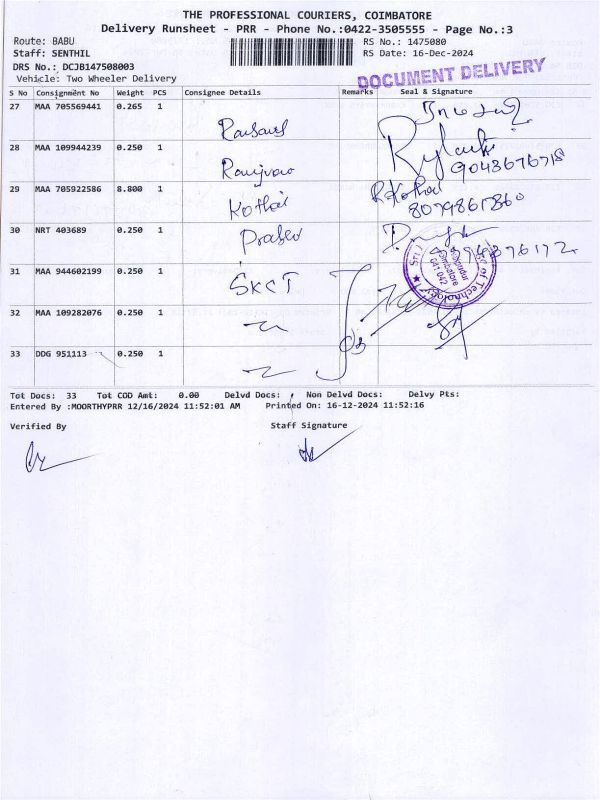 THE PROFESSIONAL COURIERS, COIMBATORE
Delivery Runsheet - PRR - Phone No.:0422-3505555 - Page No.:3
Route: BABU RS No.: 1475080
Staff: SENTHIL RS Date: 16-Dec-2024
DRS No.: DCJB147508003
Vehicle: Two Wheeler Delivery
DOCUMENT DELIVERY
S No Consignment No Weight PCS Consignee Details Remarks Seal & Signature
27 MAA 705569441 0.265 1
28 MAA 109944239 0.250 1
9043676718
29 MAA 705922586 8.800 1
Kothai R.Kothai
30 NRT 403689 0.250 1
31 MAA 944602199 0.250 1
SKCT
of Technology
Coimbatore
641 042
32 MAA 109282076 0.250 1
33 DDG 951113 0.250 1
Tot Docs: 33 Tot COD Amt: 0.00 Delvd Docs: Non Delvd Docs: Delvy Pts:
Entered By :MOORTHYPRR 12/16/2024 11:52:01 AM Printed On: 16-12-2024 11:52:16
Verified By Staff Signature